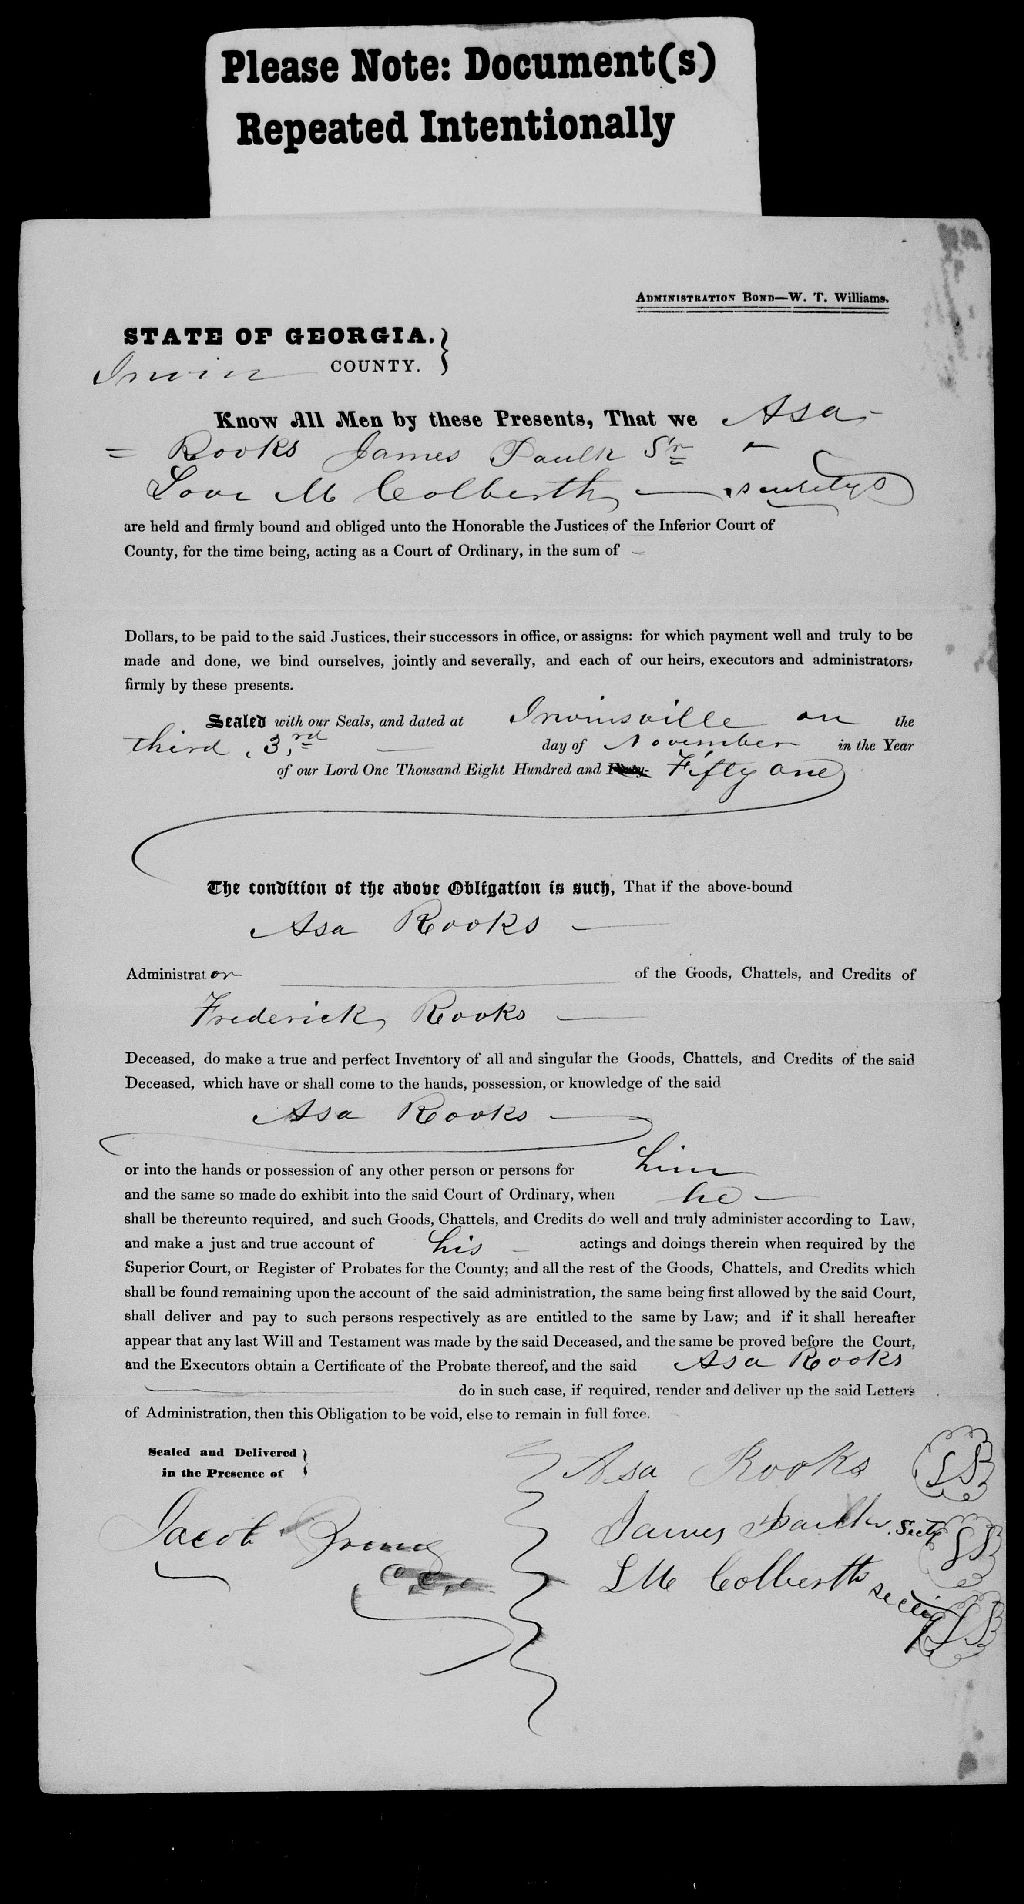 Please Note: Document(s)
Repeated Intentionally
Administration Bond—W. T. Williams.
STATE OF GEORGIA.
Irwin COUNTY.
Know All Men by these Presents, That we Asa
= Rooks James Paulk Sr
Love M Colberth securitys
are held and firmly bound and obliged unto the Honorable the Justices of the Inferior Court of
County, for the time being, acting as a Court of Ordinary, in the sum of
Dollars, to be paid to the said Justices, their successors in office, or assigns: for which payment well and truly to be
made and done, we bind ourselves, jointly and severally, and each of our heirs, executors and administrators,
firmly by these presents.
Sealed with our Seals, and dated at Irwinsville on the
third 3rd day of November in the Year
of our Lord One Thousand Eight Hundred and Fifty one
The condition of the above Obligation is such, That if the above-bound
Asa Rooks
Administrator of the Goods, Chattels, and Credits of
Frederick Rooks
Deceased, do make a true and perfect Inventory of all and singular the Goods, Chattels, and Credits of the said
Deceased, which have or shall come to the hands, possession, or knowledge of the said
Asa Rooks
or into the hands or possession of any other person or persons for him
and the same so made do exhibit into the said Court of Ordinary, when he
shall be thereunto required, and such Goods, Chattels, and Credits do well and truly administer according to Law,
and make a just and true account of his actings and doings therein when required by the
Superior Court, or Register of Probates for the County; and all the rest of the Goods, Chattels, and Credits which
shall be found remaining upon the account of the said administration, the same being first allowed by the said Court,
shall deliver and pay to such persons respectively as are entitled to the same by Law; and if it shall hereafter
appear that any last Will and Testament was made by the said Deceased, and the same be proved before the Court,
and the Executors obtain a Certificate of the Probate thereof, and the said Asa Rooks
do in such case, if required, render and deliver up the said Letters
of Administration, then this Obligation to be void, else to remain in full force.
Sealed and Delivered
in the Presence of
Asa Rooks LS
Jacob
James Paulk Secty LS
L M Colberth LS